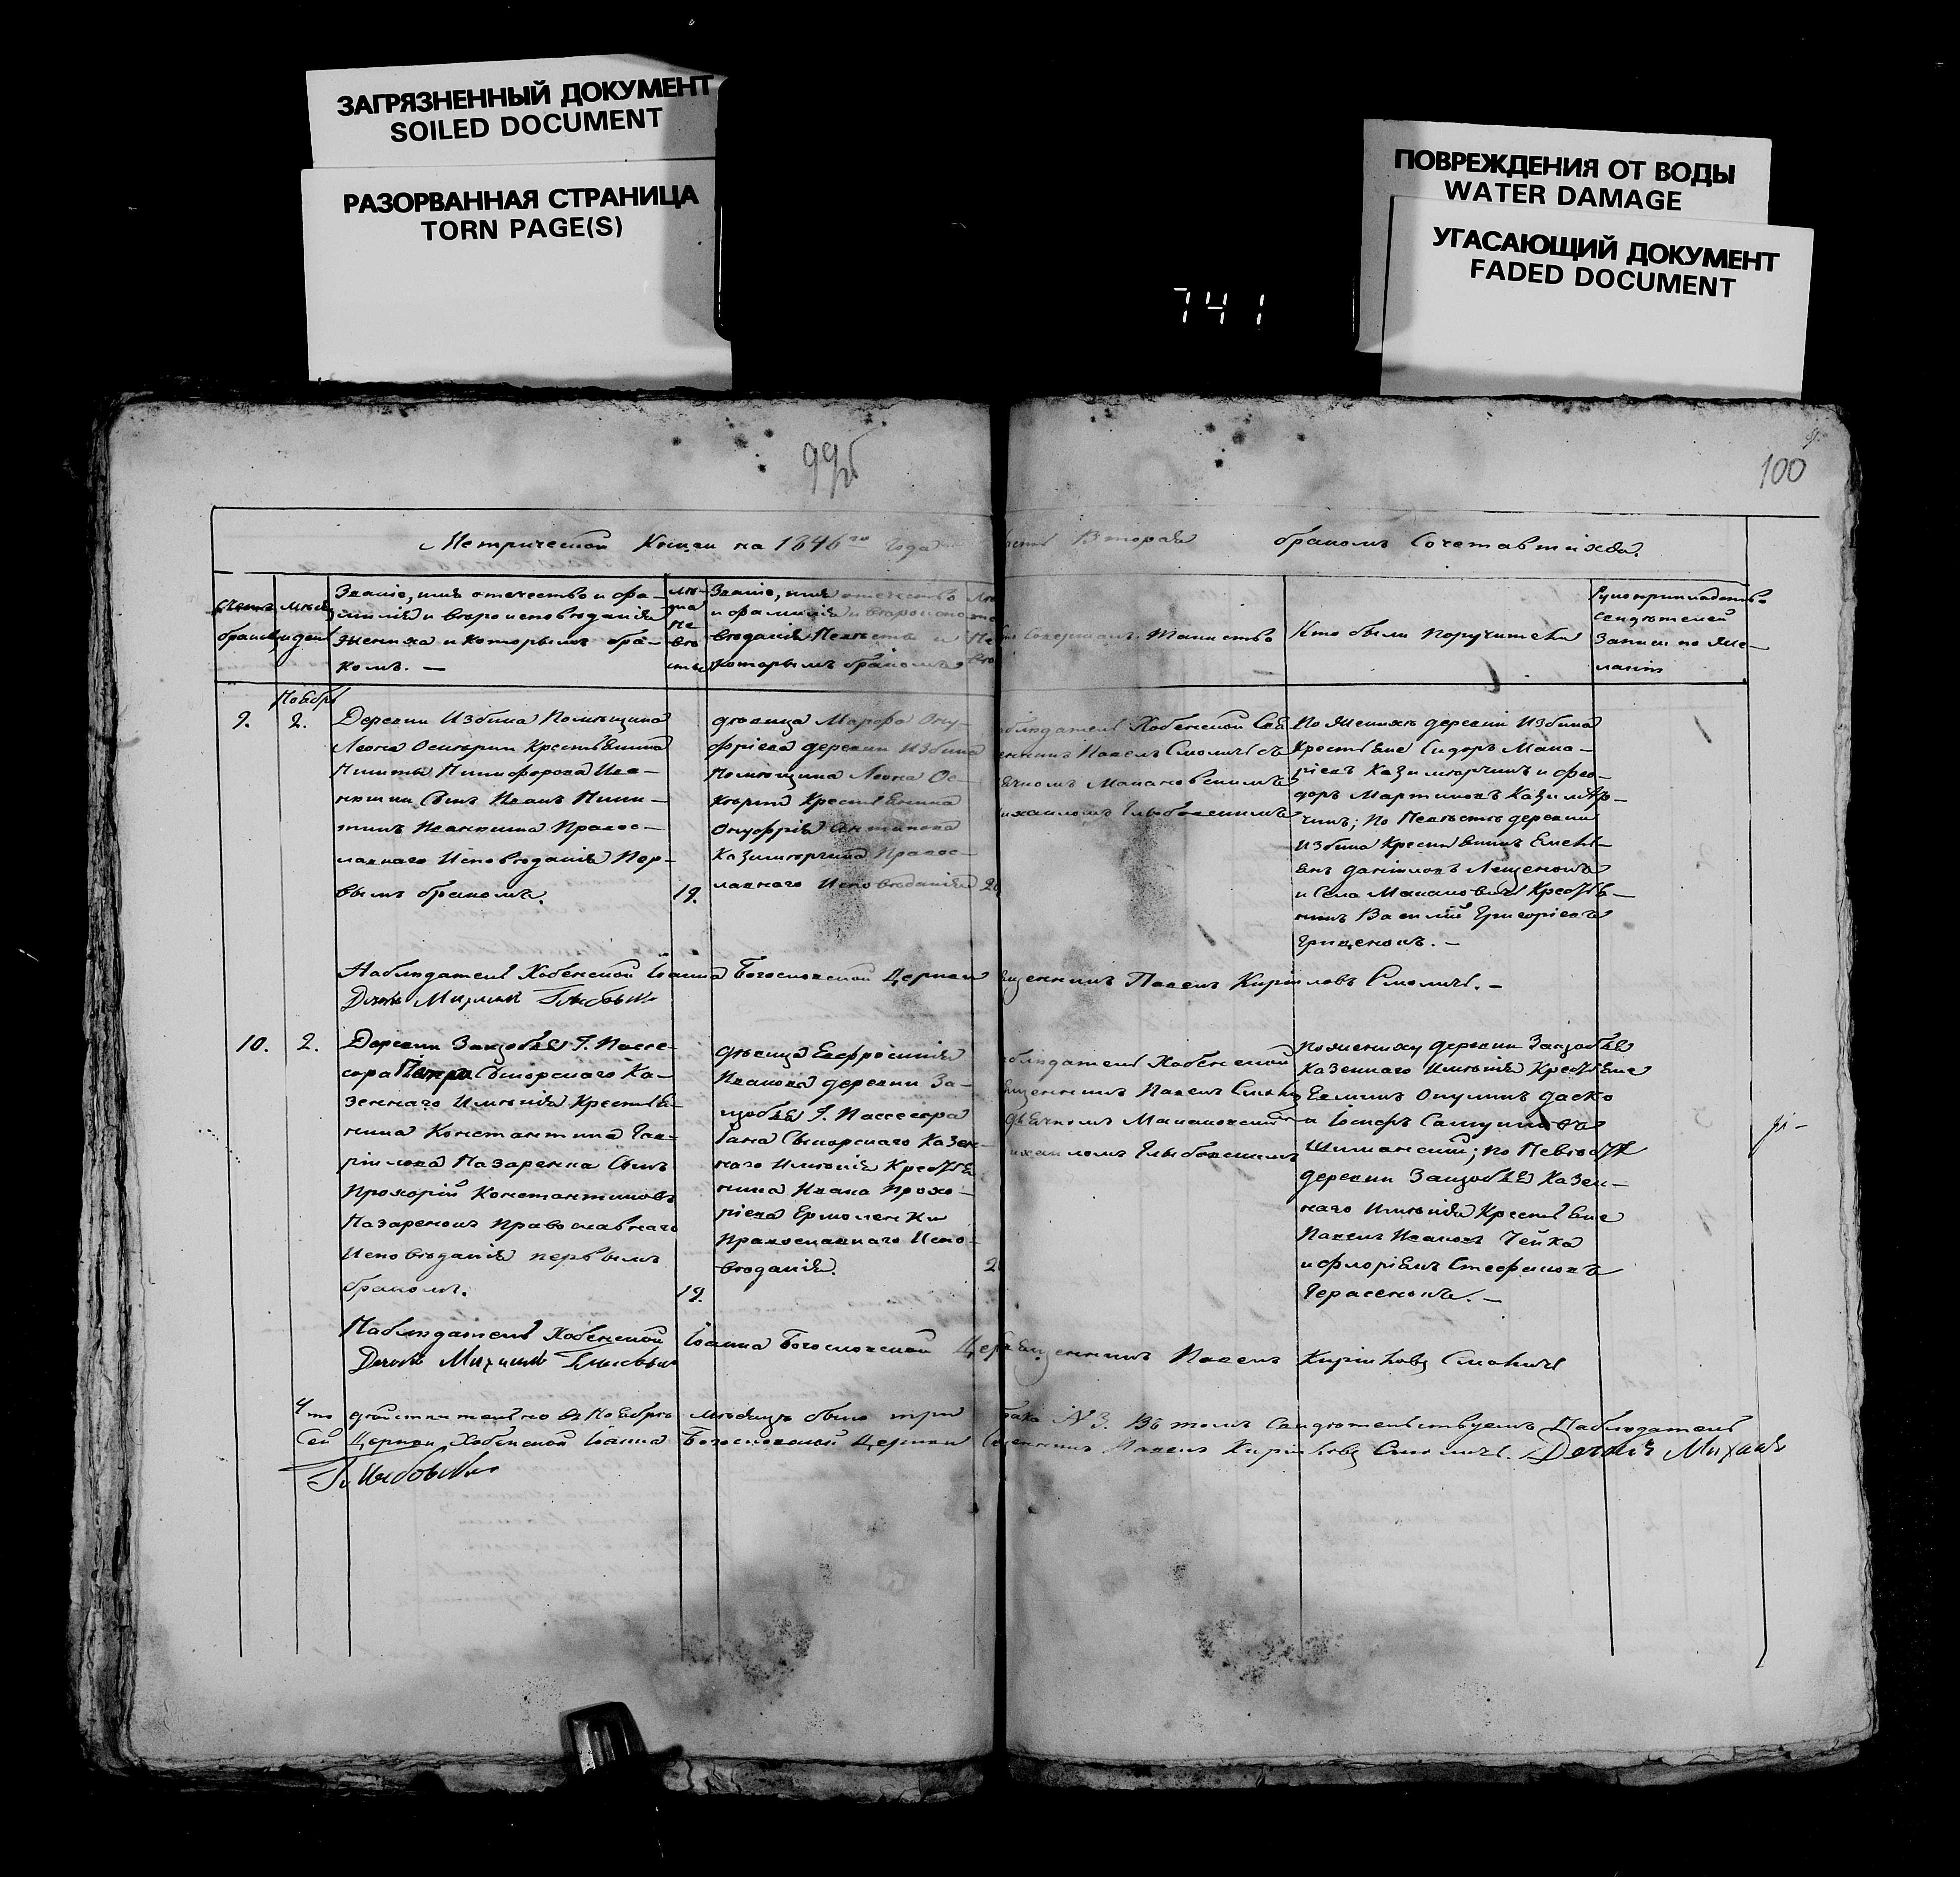 ЗАГРЯЗНЕННЫЙ ДОКУМЕНТ
SOILED DOCUMENT
РАЗОРВАННАЯ СТРАНИЦА
TORN PAGE(S)
ПОВРЕЖДЕНИЯ ОТ ВОДЫ
WATER DAMAGE
УГАСАЮЩИЙ ДОКУМЕНТ
FADED DOCUMENT
741
99б
100
Метрической Книги на 1846го года
Вторая
бракомъ Сочетавшихся
Званіе, имя отечество и фа-
милія и вероисповѣданія
жениха и которымъ бра-
комъ. —
Званіе, имя отечество
и фамилія и вероиспо
вѣданія Невѣсты и
которымъ бракомъ
Совершалъ Таинство
Кто были поручители
Рукоприкладство
свидѣтелей
Записи по же-
ланію
Ноября
9.
2.
Деревни Избина Помѣщика
Леона Оскерки Крестьянина
Никиты Никифорова Ива-
нькина Сынъ Иванъ Ники-
тинъ Иванкина Правос-
лавнаго Исповѣданія Пер-
вымъ бракомъ.
19.
дѣвица Марфа Ону-
фріева деревни Избина
Помѣщика Леона Ос-
керки Крестьянина
Онуфрія Антипова
Казимирчика Правос-
лавнаго Исповѣданія
блюдатель Хобенской Свя
енникъ Павелъ Смоличъ съ
ячкомъ Макановскимъ
ихаиломъ Глыбовскимъ
По Женихѣ деревни Избина
Крестьяне Сидоръ Мака-
ріевъ Казимірчикъ и Фео-
доръ Мартиновъ Казимір-
чикъ; по Невѣстѣ деревни
Избина Крестьянинъ Емель-
янъ Даниловъ Лещенокъ
и Села Макановичъ Крестья-
нинъ Василій Григоріевъ
Гриценокъ. —
Наблюдатель Хобенской Іоанна Богословской Церкви
щенникъ Павелъ Кириловъ Смоличъ. —
Дьячокъ Михаилъ
10.
2.
Деревни Зашобья Г. Пассе-
сора Сикорскаго Ка-
зеннаго Имѣнія Крестья-
нина Константина Гав-
рилова Назаренка Сынъ
Прохорій Константиновъ
Назаренокъ православнаго
Исповѣданія первымъ
бракомъ.
19.
дѣвица Евфросинія
Иванова деревни За-
щобья Г. Пассесора
Сикорскаго Казен-
наго Имѣнія Крестья
нина Ивана Прохо-
ріева Ермоленки
православнаго Испо-
вѣданія.
блюдатель Хобенской
щенникъ Павелъ Смоличъ
дьячкомъ Макановским
ихаиломъ Глыбовскимъ
По жениху деревни Защобья
Казеннаго Имѣнія Крестьяне
и Іосифъ
Шиманскій; по Невѣстѣ
деревни Защобья Казен-
наго Имѣнія Крестьяне
Павелъ Ивановъ Чейка
и Флоріянъ Стефановъ
Герасенокъ. —
Наблюдатель Хобенской Іоанна Богословской Церк
щенникъ Павелъ Кириловъ Смоличъ
Дьячокъ Михаилъ
Что дѣйствительно въ Ноябрѣ мѣсяцѣ было три
рака № 3. Въ томъ Свидѣтельствуемъ Наблюдатель
Сей Церкви Хобенской Іоанна Богословской Церкви
щенникъ Павелъ Кириловъ Смоличъ. Дьячокъ Михаилъ